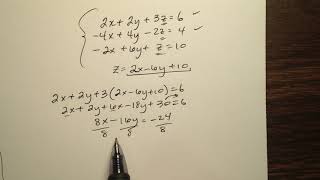 2x + 2y + 3z = 6 ✓
-4x + 4y - 2z = 4 ✓
-2x + 6y + z = 10
z = 2x - 6y + 10
2x + 2y + 3(2x - 6y + 10) = 6
2x + 2y + 6x - 18y + 30 = 6
8x - 16y = -24
8 8 8